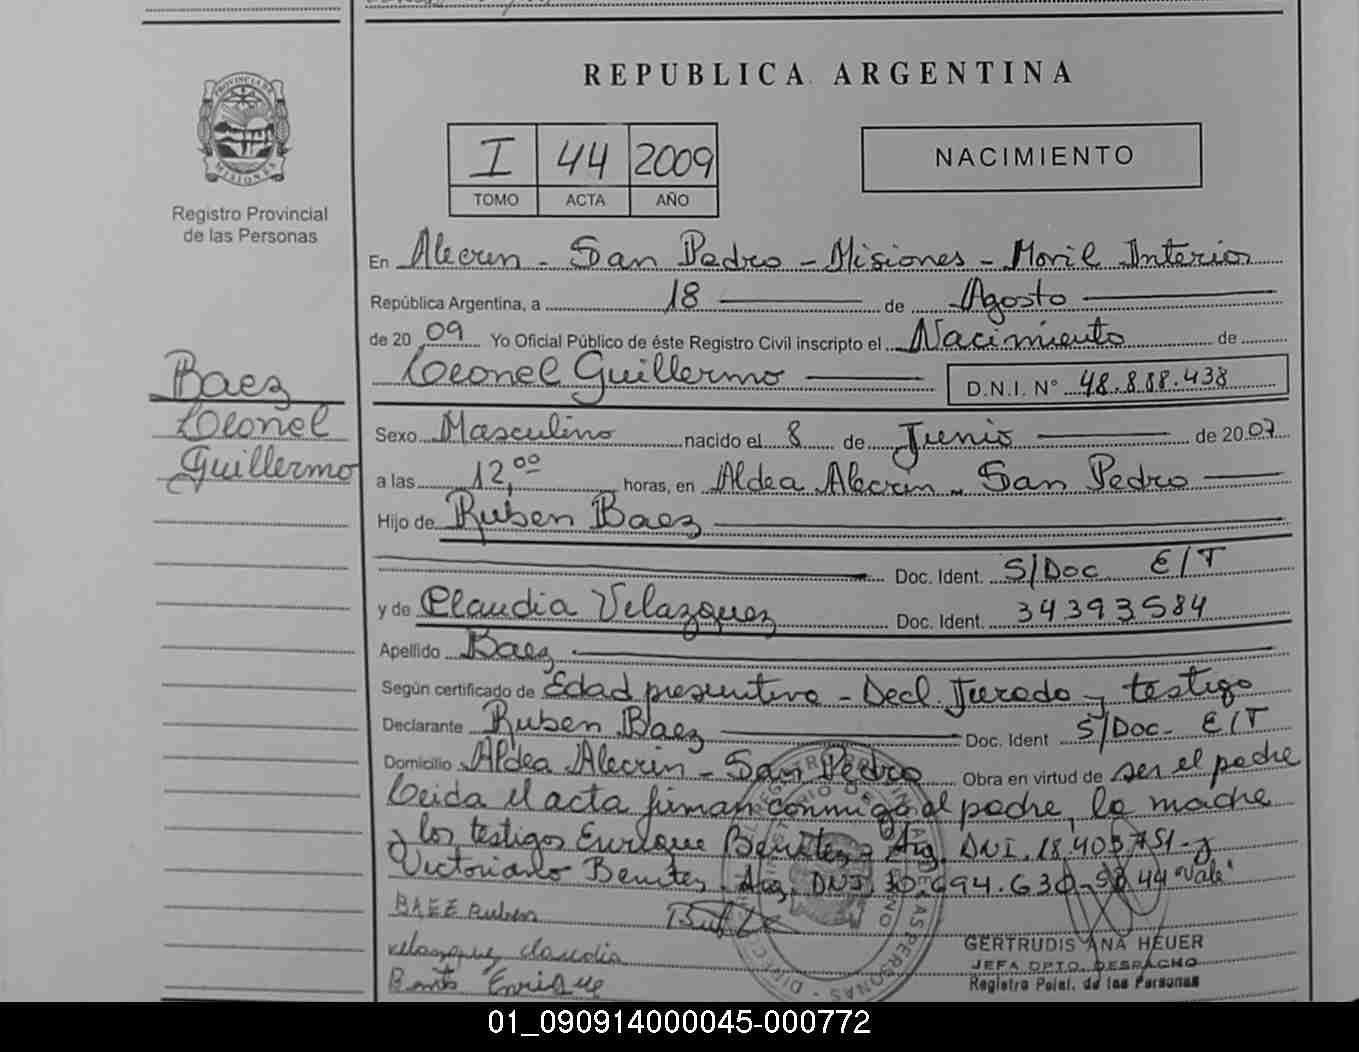 REPUBLICA ARGENTINA
PROVINCIA DE MISIONES
Registro Provincial
de las Personas
I 44 2009
TOMO ACTA AÑO
NACIMIENTO
En Alecrin - San Pedro - Misiones - Movil Interior
República Argentina, a 18 de Agosto
de 20 09 Yo Oficial Público de éste Registro Civil inscripto el Nacimiento de
Leonel Guillermo D.N.I. N° 48.888.438
Baez
Leonel
Guillermo
Sexo Masculino nacido el 8 de Junio de 2007
a las 12,00 horas, en Aldea Alecrin - San Pedro
Hijo de Ruben Baez
Doc. Ident. S/Doc E/T
y de Claudia Velazquez Doc. Ident. 34393584
Apellido Baez
Según certificado de Edad presuntiva - Decl. Jurada y testigo
Declarante Ruben Baez Doc. Ident S/Doc - E/T
Domicilio Aldea Alecrin - San Pedro Obra en virtud de ser el padre
Leida el acta firman conmigo el padre, la madre
y los testigos Enrique Benitez - Arg. DNI. 18.405.751 - y
Victoriano Benitez, Arg. DNI 30.694.630 - 44 "Vale"
BAEE Ruben
Velazquez claudia
Enrique
GERTRUDIS ANA HEUER
JEFA DPTO. DESPACHO
Registro Pcial. de las Personas
01_090914000045-000772